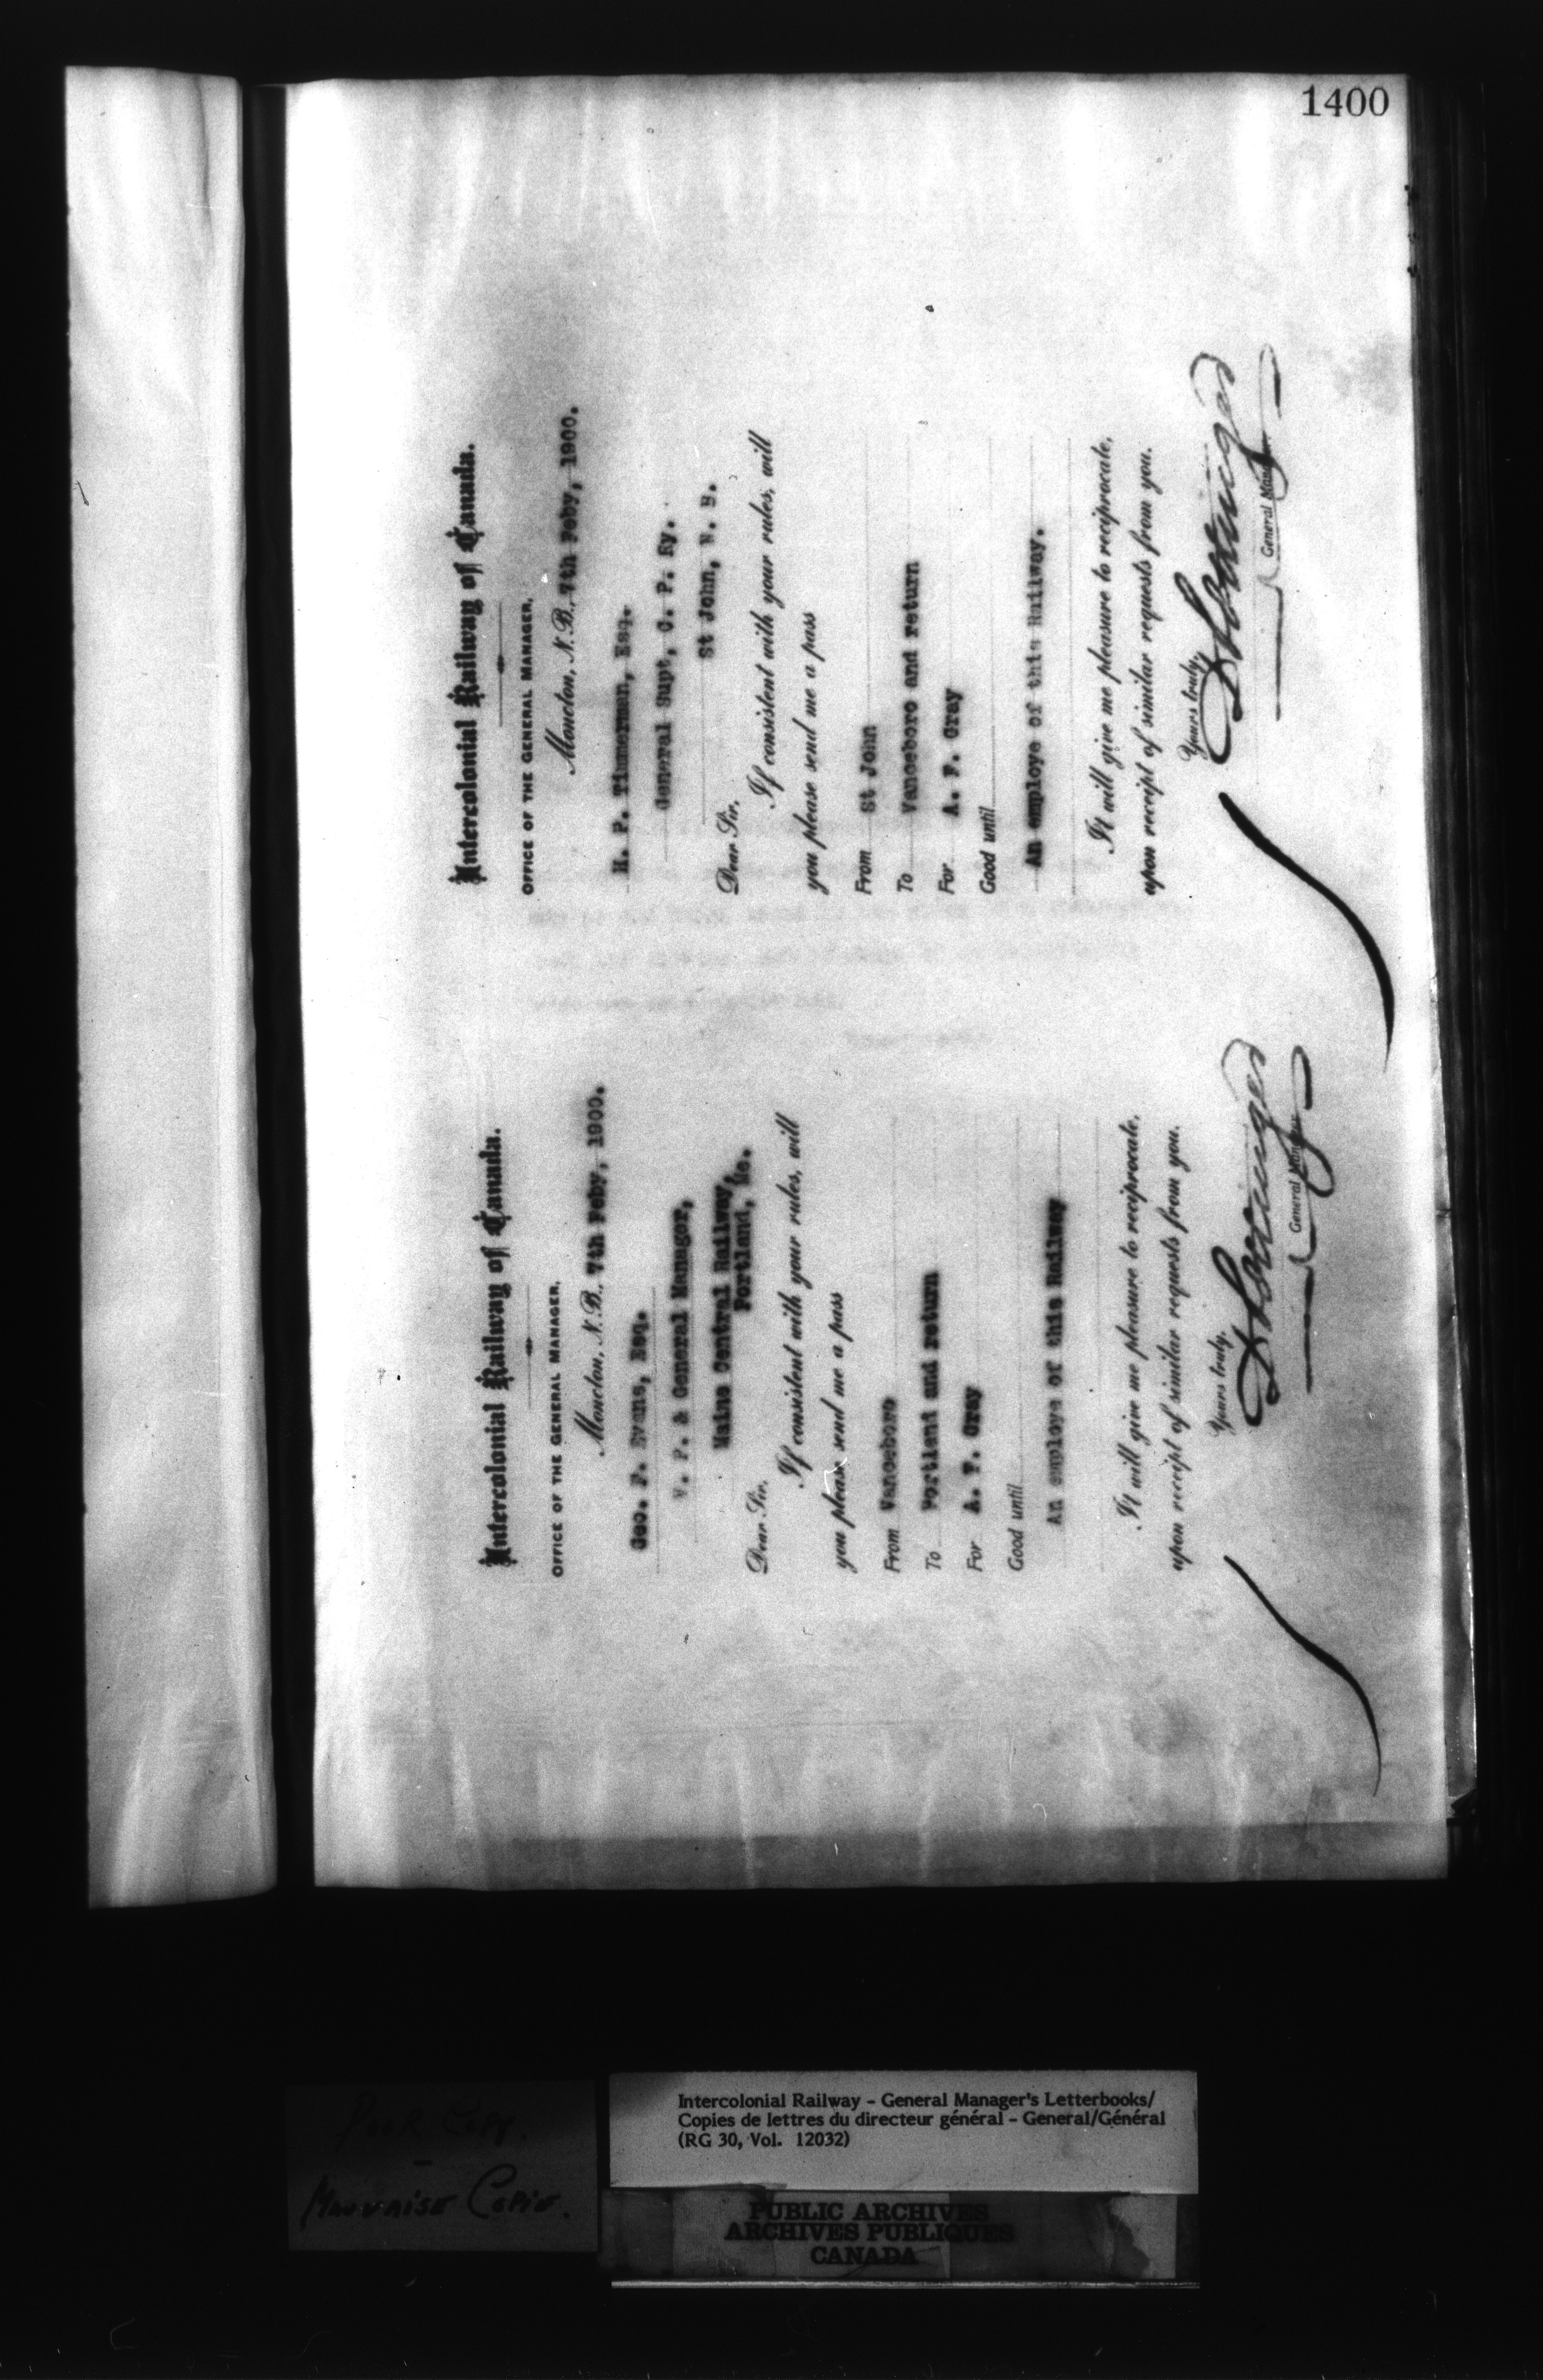 1400
Intercolonial Railway of Canada.
OFFICE OF THE GENERAL MANAGER.
Moncton, N.B., 7th Feby, 1900.
Geo. F. Evans, Esq.
V. P. & General Manager,
Maine Central Railway,
Portland, Me.
Dear Sir,
If consistent with your rules, will
you please send me a pass
From Vanceboro
To Portland and return
For A. F. Gray
Good until
An employe of this Railway
It will give me pleasure to reciprocate,
upon receipt of similar requests from you.
Yours truly,
General Manager
Intercolonial Railway of Canada.
OFFICE OF THE GENERAL MANAGER.
Moncton, N.B., 7th Feby, 1900.
H. P. Timmerman, Esq.
General Supt, C. P. Ry.
St John, N. B.
Dear Sir,
If consistent with your rules, will
you please send me a pass
From St John
To Vanceboro and return
For A. F. Gray
Good until
An employe of this Railway.
It will give me pleasure to reciprocate,
upon receipt of similar requests from you.
Yours truly,
General Manager
Poor Copy.
Mauvaise Copie.
Intercolonial Railway - General Manager's Letterbooks/
Copies de lettres du directeur général - General/Général
(RG 30, Vol. 12032)
PUBLIC ARCHIVES
ARCHIVES PUBLIQUES
CANADA